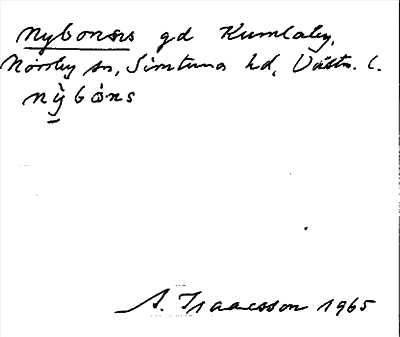 Nybonäs gd Kumlaby,
Norrby sn, Simtuna hd, Västm. l.
nỳbóns
A. Isaacsson 1965